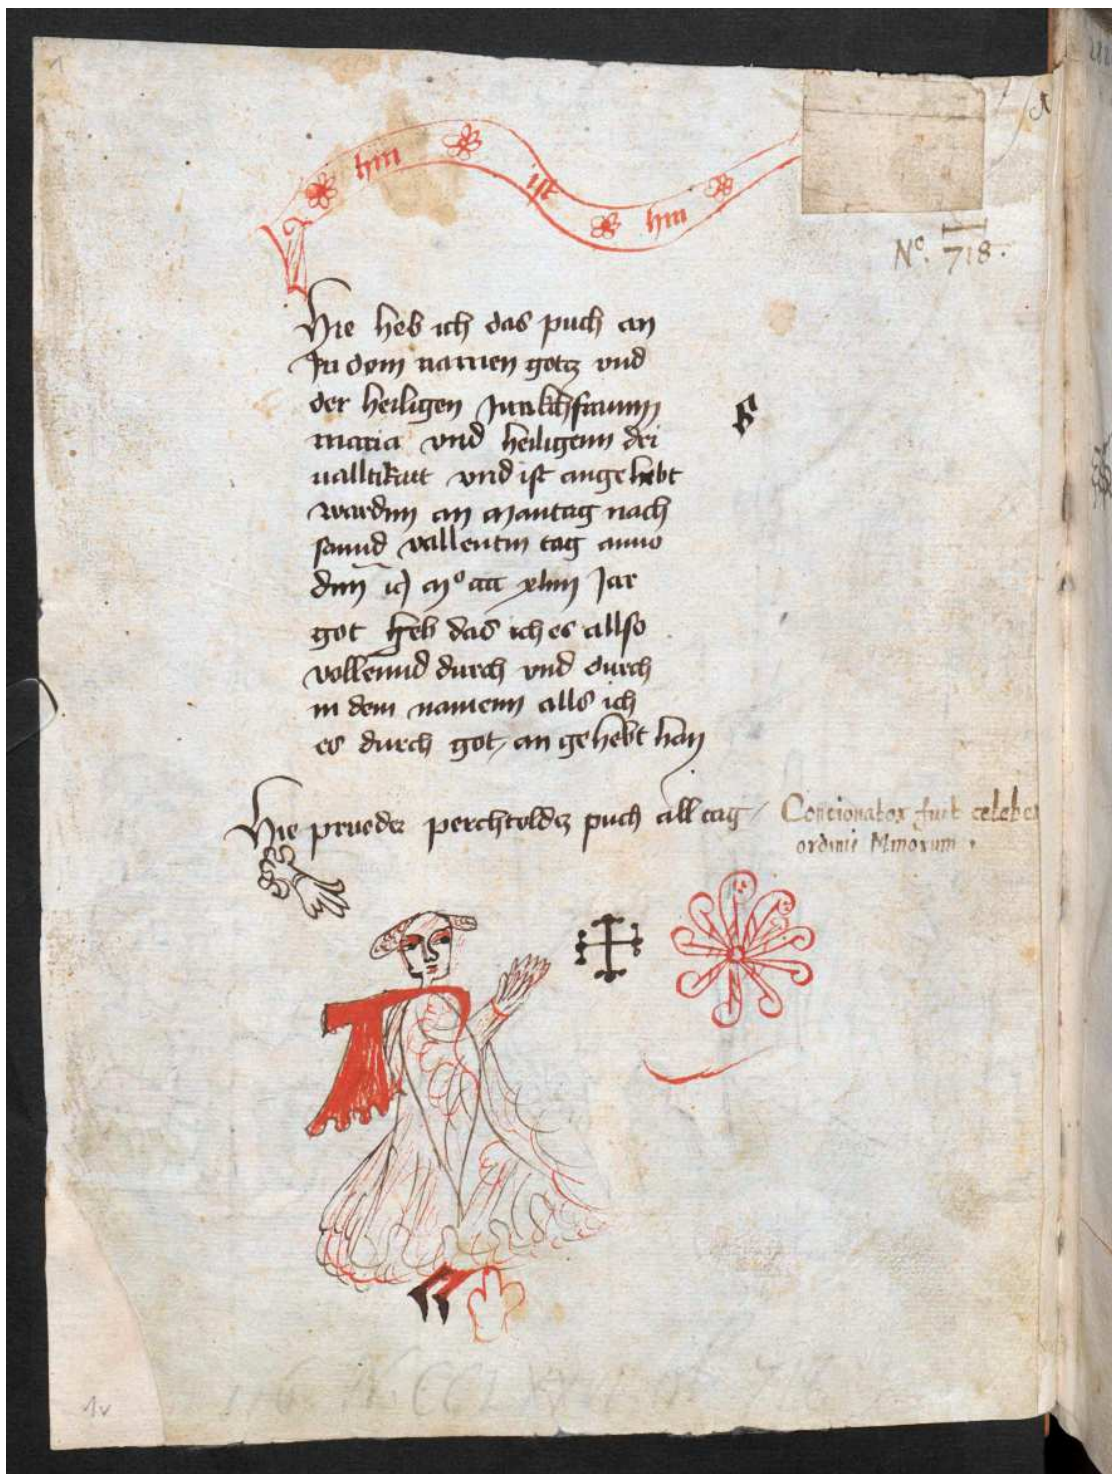 hin ist hin
N° 718.
Hie heb ich das puch an
In dem namen gotz vnd
der heiligen Junkchfraunn
maria vnd heiligenn dri
ualltikait vnd ist angehebt
wordnn an mantag nach
sannd vallentin tag anno
dnn
got heb das ich es allso
vollennd durch vnd durch
in dem namenn alls ich
es durch got an gehebt han
Hie prueder perchtoldz puch all tag
Concionator fuit celeber
ordinis Minorum.
1v